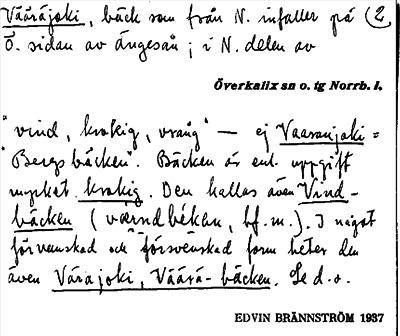 Vääräjoki, bäck som från N. infaller på (2
Ö. sidan av ängesån; i N. delen av
Överkalix sn o. tg Norrb. l.
"vind, krokig, vrång" — ej Vaaranjoki =
"Bergsbäcken". Bäcken är enl. uppgift
mycket krokig. Den kallas även Vind-
bäcken (værndbékkən, bf. m.). I något
förvanskad och försvenskad form heter den
även Värajoki, Väärä-bäcken. Se d. o.
EDVIN BRÄNNSTRÖM 1937